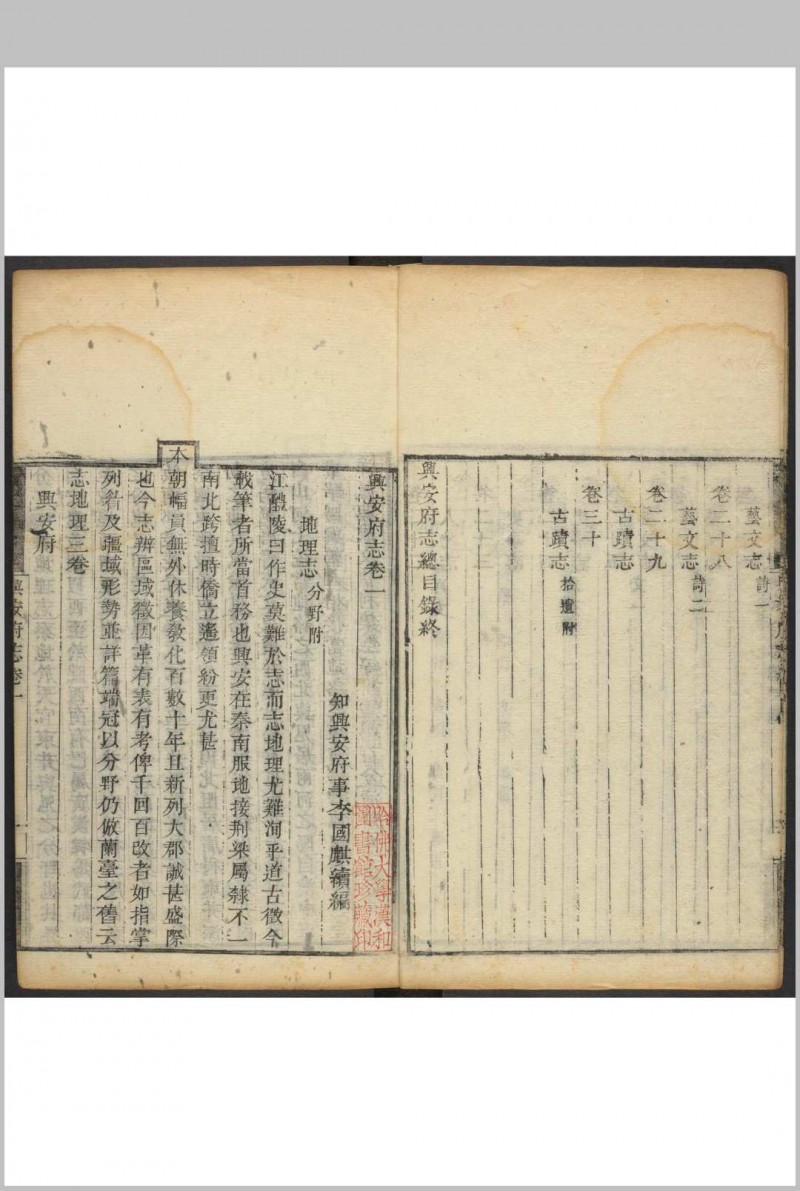 藝文志 詩一
卷二十八
藝文志 詩二
卷二十九
古蹟志
卷三十
古蹟志 拾遺附
興安府志總目錄終
興安府志卷一
哈佛大學漢和
圖書館珍藏印
知興安府事李國麒續編
地理志 分野附
江醴陵曰作史莫難於志而志地理尤難洵乎道古徵今
載筆者所當首務也興安在秦南服地接荆梁屬隸不一
南北跨擅時僑立遙領紛更尤甚
本朝幅員無外休養敎化百數十年且新列大郡誠甚盛際
也今志辨區域徵因革有表有考俾千回百改者如指掌
列眷及疆域形勢並詳篇端冠以分野仍倣蘭臺之舊云
志地理三卷
興安府
興安府志卷一